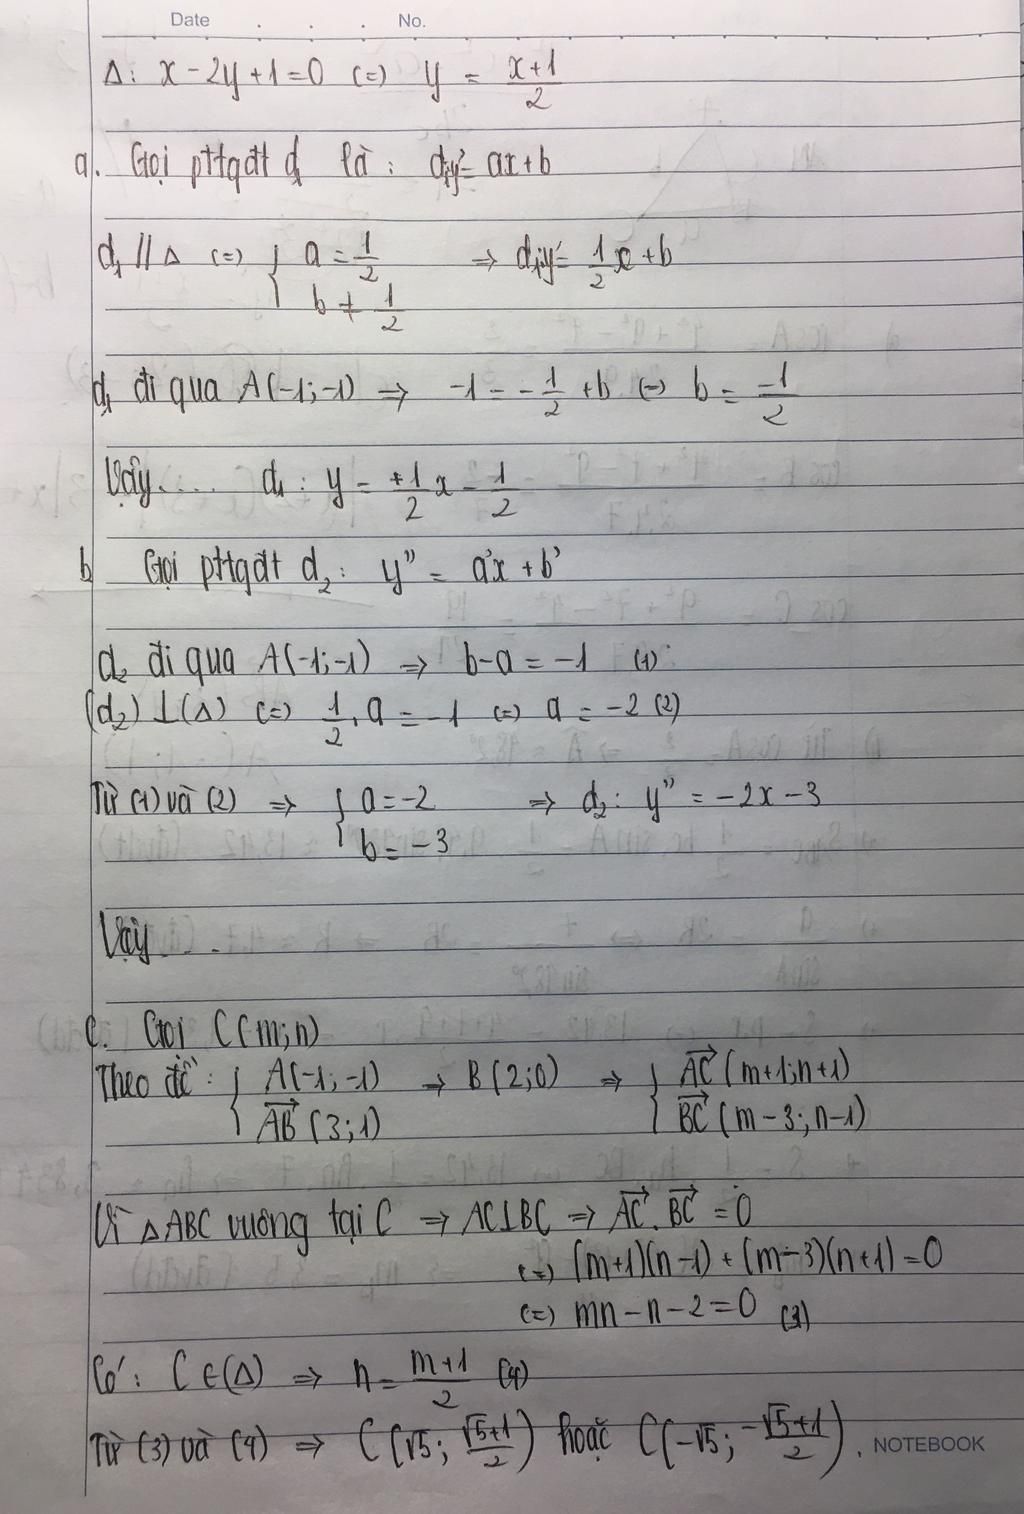 Date . . . No.
Δ: x - 2y + 1 = 0 (=) y = \frac{x+1}{2}
a. Gọi pttqđt d₁ là : d₁:y' = ax + b
d₁ // Δ (=) { a = \frac{1}{2} => d₁:y' = \frac{1}{2}x + b
b ≠ \frac{1}{2}
d₁ đi qua A(-1;-1) => -1 = -\frac{1}{2} + b (=) b = \frac{-1}{2}
Vậy..... d₁ : y = \frac{+1}{2}x - \frac{1}{2}
b Gọi pttqđt d₂ : y" = a'x + b'
d₂ đi qua A(-1;-1) => b-a = -1 (1)
(d₂) ⊥ (Δ) (=) \frac{1}{2}.a = -1 (=) a = -2 (2)
Từ (1) và (2) => { a = -2 => d₂ : y" = -2x - 3
b = -3
Vậy .
c. Gọi C(m;n)
Theo đề : { A(-1;-1) → B(2;0) => { \overrightarrow{AC} (m+1;n+1)
\overrightarrow{AB} (3;1) \overrightarrow{BC} (m-3;n-1)
Vì ΔABC vuông tại C => AC⊥BC => \overrightarrow{AC}.\overrightarrow{BC} = 0
(=) (m+1)(n-1) + (m-3)(n+1) = 0
(=) mn - n - 2 = 0 (3)
Có : C∈(Δ) => n = \frac{m+1}{2} (4)
Từ (3) và (4) => C(√5; \frac{√5+1}{2}) hoặc C(-√5; \frac{-√5+1}{2}).
NOTEBOOK